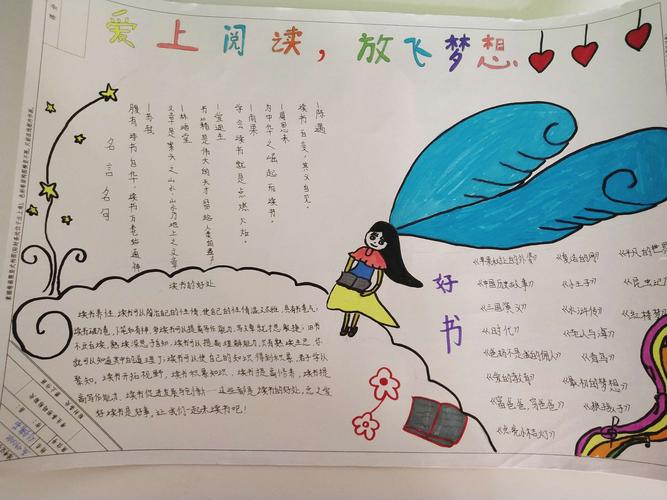 爱上阅读，放飞梦想
名言名句
腹有诗书气自华，读书万卷始通神
—苏轼
文章是案头之山水，山水乃地上之文章
—林语堂
书籍是伟大的天才留给人类的遗产
—爱迪生
学会读书就是点燃火炬
—雨果
为中华之崛起而读书
—周恩来
读书百变，其义自见
—陈遇
读书的好处
读书养性，读书可以陶冶自己的性情，使自己的性情温文尔雅，具有书卷气；
读书破万卷，下笔如有神，多读书可以提高写作能力，写文章就才思敏捷；旧书
不厌百读，熟读深思子自知，读书可以提高理解能力，只有熟读深思，你
就可以知道其中的道理了；读书可以使自己的知识得到积累，君子学以
聚知。读书开拓视野，读书积累知识，读书提高修养，读书提
高写作能力，读书促进发展与创新……这些都是读书的好处，总之爱
好读书是好事，让我们一起来读书吧！
好书
《草房子上的孩子》
《中国历史故事》
《三国演义》
《时代》
《爸妈不是我的佣人》
《爱的教育》
《富爸爸，穷爸爸》
《点亮小桔灯》
《复活的阿》
《小王子》
《水浒传》
《老人与海》
《青鸟》
《最初的梦想》
《棋孩子》
《平凡的世界
《昆虫记》
《红楼梦